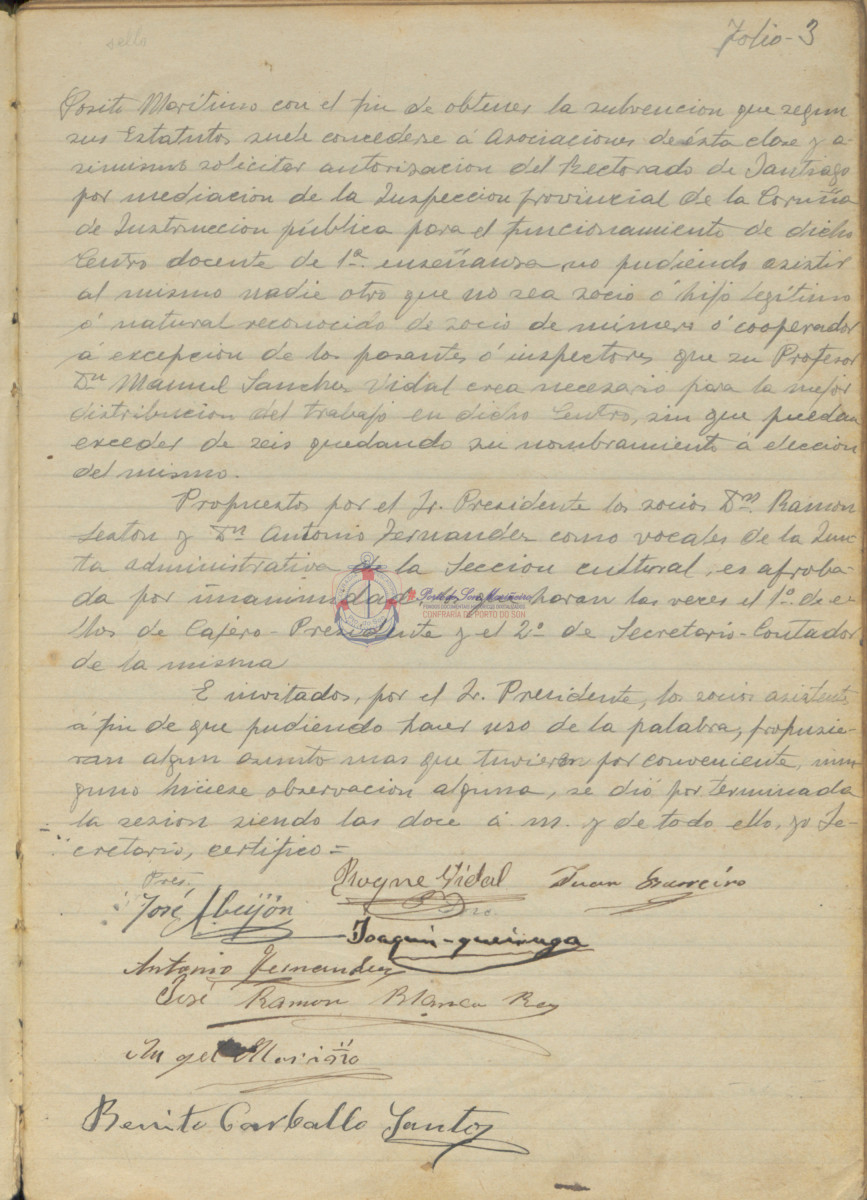 sello
Folio-3
Posito Marítimo con el fin de obtener la subvencion que segun
sus Estatutos suele concederse á Asociaciones de ésta clase y a-
simismo solicitar autorizacion del Rectorado de Santiago
por mediacion de la Inspeccion provincial de la Coruña
de Instruccion pública para el funcionamiento de dicho
Centro docente de 1ª enseñanza, no pudiendo asistir
al mismo nadie otro que no sea socio ó hijo legítimo
ó natural reconocido de socio de número ó cooperador
á excepcion de los pasantes ó inspectores que su Profesor
Dn Manuel Sanchez Vidal crea necesario para la mejor
distribucion del trabajo en dicho Centro, sin que puedan
exceder de seis quedando su nombramiento á eleccion
del mismo.
Propuestos por el Sr. Presidente los socios Dn. Ramon
Sexton y Dn Antonio Fernandez como vocales de la Jun-
ta administrativa de la Seccion cultural, es aproba-
da por unanimidad haran las veces el 1º. de e-
llos de Cajero-Presidente y el 2º de Secretario-Contador
de la misma
E invitados, por el Sr. Presidente, los socios asistentes
á fin de que pudiendo hacer uso de la palabra, propusie-
ran algun asunto mas que tuvieran por conveniente, nin-
guno hiciese observacion alguna, se dió por terminada
la sesion siendo las doce a. m. y de todo ello, yo Se-
cretario, certifico=
Pres.
Roque Vidal
Juan Barreiro
José Abeijón
Joaquin-queiruga
Antonio Fernandez
José Ramon Blanco Rey
Angel Mariño
Benito Carballo Santos
CONFRARÍA DE PORTO DO SON